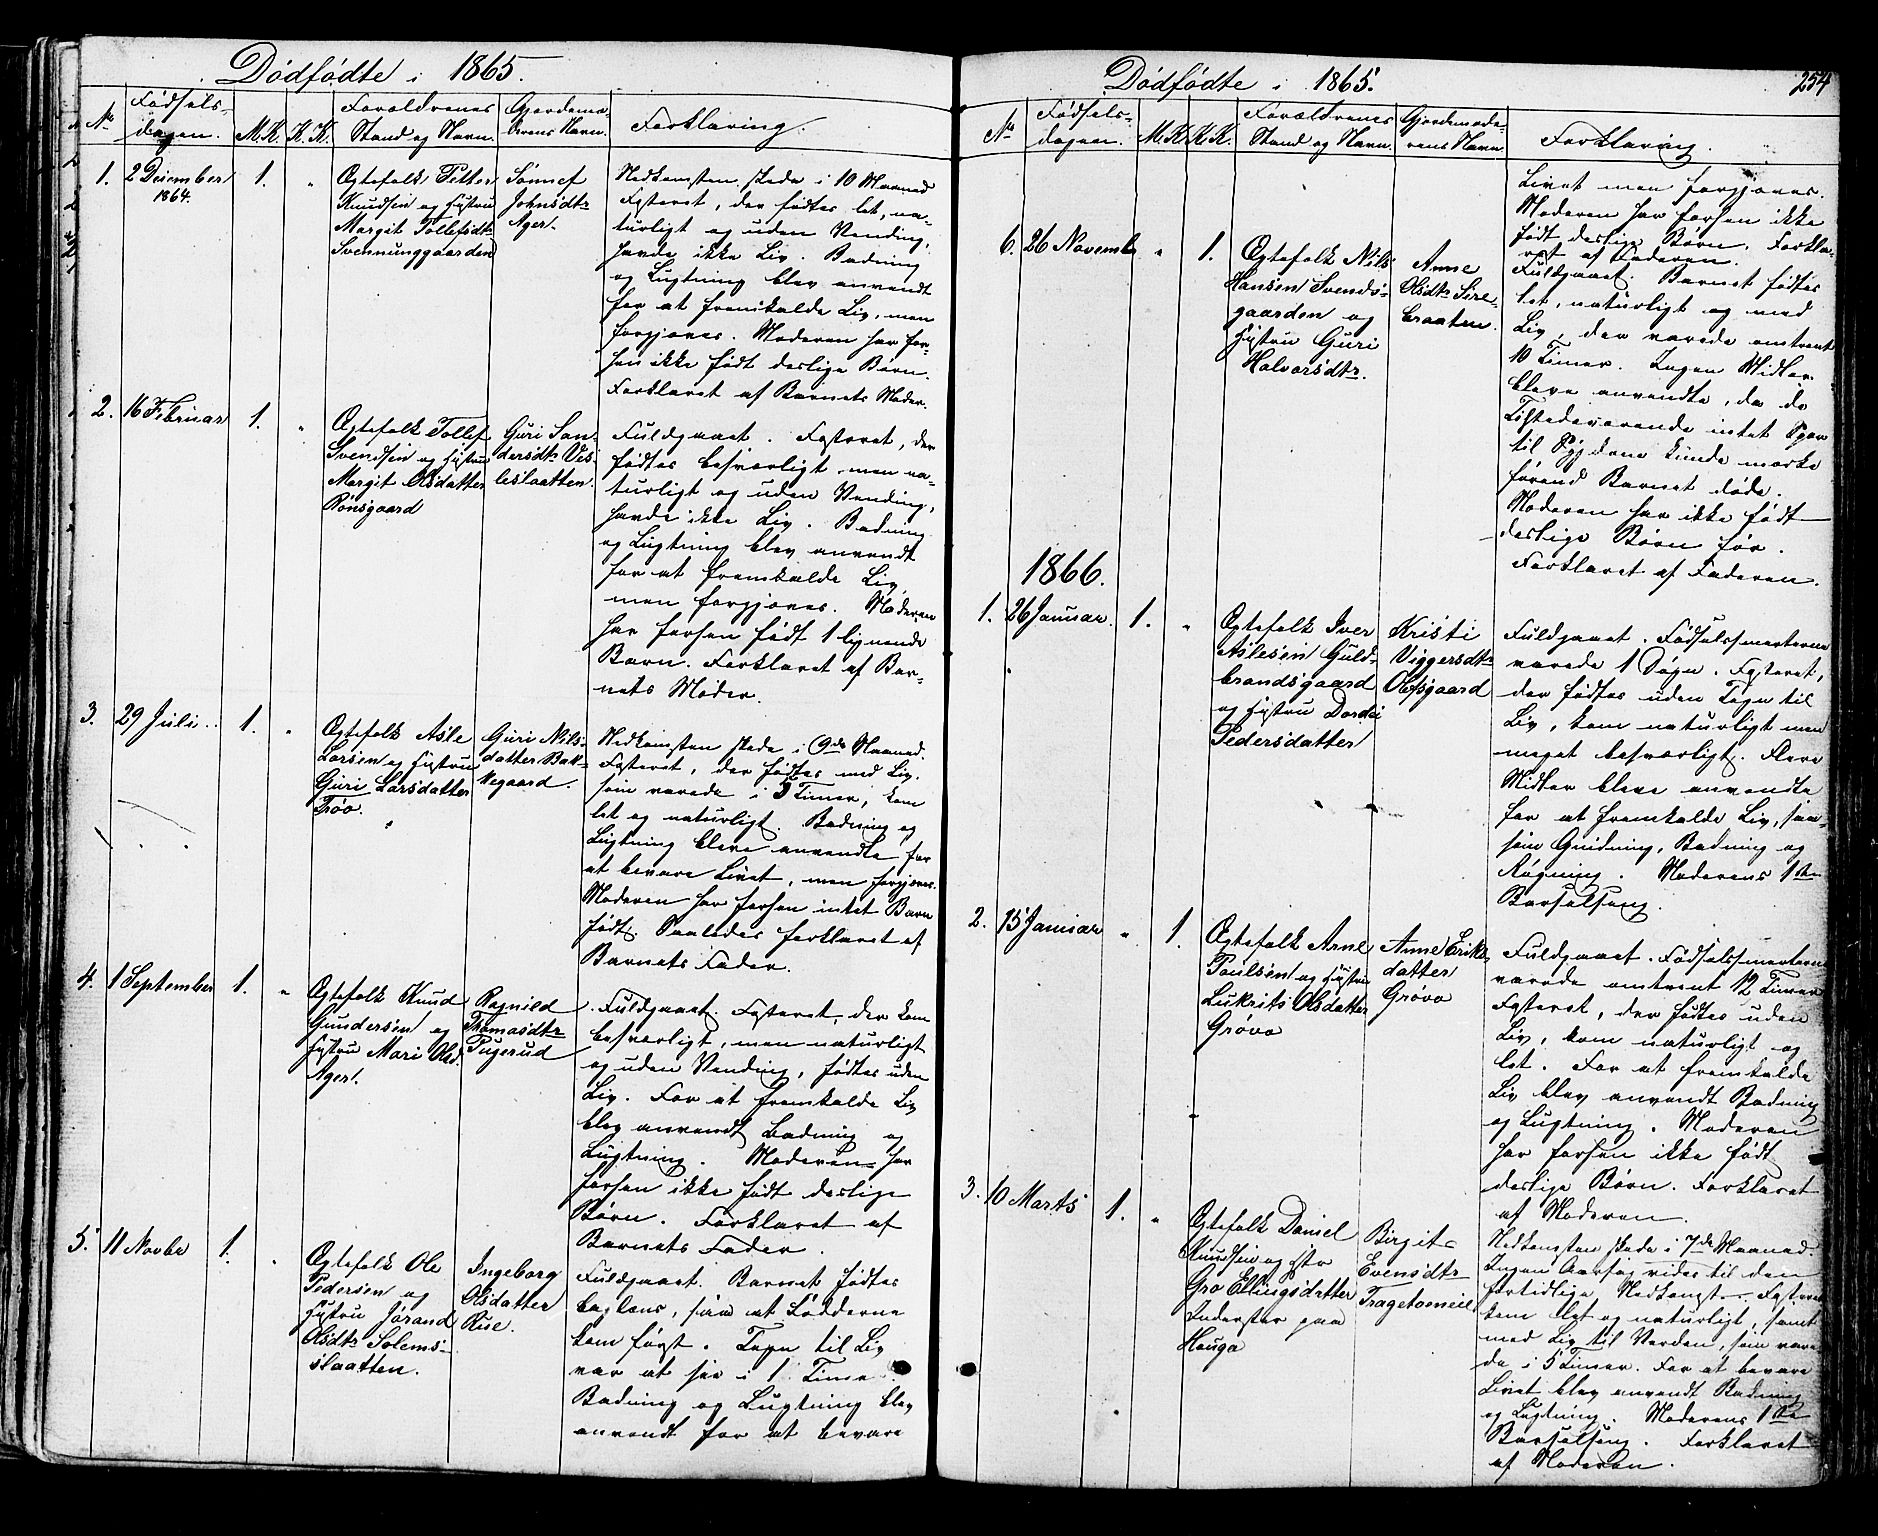 Dødfødte i 1865.
No
Fødsels-
dagen.
M.K.
K.K.
Forældrenes
Stand og Navn.
Gjordemo-
derens Navn.
Forklaring.
1.
2 Desember
1864.
1.
"
Ægtefolk Petter
Knudsen og Hustru
Margit Tollefsdtr
Svennunggaarden
Sønnef
Johnsdtr
Ager.
Nedkomsten skede i 10 Maaned
Fosteret, der fødtes let, na-
turligt og uden Vending,
havde ikke Liv. Badning
og Lugtning blev anvendt
for at fremkalde Liv, men
forgjæves. Moderen har for-
hen ikke født deslige Børn.
Forklaret af Barnets Moder.
2.
16 Februar
1.
"
Ægtefolk Tollef
Svendsen og Hustru
Margit Olsdatter
Rønsgaard
Guri San-
dersdtr Ves-
leslaatten.
Fuldgaaet. Fosteret, der
fødtes besværligt men na-
turligt og uden Vending,
havde ikke Liv. Badning
og Lugtning blev anvendt
for at fremkalde Liv
men forgjæves. Moderen
har forhen født 1 lignende
Barn. Forklaret af Bar-
nets Moder.
3.
29 Juli
1.
"
Ægtefolk Asle
Larsen og Hustru
Guri Larsdatter
Trøo.
Guri Nils-
datter Bak-
kegaard.
Nedkomsten skede i 9de Maaned.
Fosteret, der fødtes med Liv,
som varede i 3 Timer, kom
let og naturligt. Badning og
Lugtning bleve anvendte for
at bevare Livet, men forgjæves.
Moderen har forhen intet Barn
født. Saaledes forklaret af
Barnets Fader.
4.
1 September
1.
"
Ægtefolk Knud
Gundersen og
Hustru Mari Olsd.
Ager.
Ragnild
Thomasdtr
Pugerud
Fuldgaaet. Fosteret, der kom
besværligt, men naturligt
og uden Vending, fødtes uden
Liv. For at fremkalde Liv
blev anvendt Badning og
Lugtning. Moderen har
forhen ikke født deslige
Børn. Forklaret af
Barnets Fader.
5.
11 Novbr
1.
"
Ægtefolk Ole
Pedersen og
Hustru Jørand
Olsdtr Solems-
slaatten.
Ingeborg
Olsdatter
Rue.
Fuldgaaet. Barnet fødtes
baglæns, saa at Fødderne
kom først. Tegn til Liv
var at see i 1 Time.
Badning og Lugtning blev
anvendt for at bevare
Dødfødte i 1865.
254
No
Fødsels-
dagen.
M.K.
K.K.
Forældrenes
Stand og Navn.
Gjordemode-
rens Navn.
Forklaring.
Livet men forgjæves.
Moderen har forhen ikke
født deslige Børn. Forkla-
ret af Faderen.
6.
26 Novemb
"
1.
Ægtefolk Nils
Hansen Svends-
gaarden og
Hustru Guri
Halvorsdtr.
Anne
Olsdtr Sire-
braaten.
Fuldgaaet. Barnet fødtes
let, naturligt og med
Liv, der varede omtrent
10 Timer. Ingen Midler
bleve anvendte, da de
Tilstedeværende intet Spor
til Sygdom kunde mærke
førend Barnet døde.
Moderen har ikke født
deslige Børn før.
Forklaret af Faderen.
1866.
1.
26 Januar.
1.
"
Ægtefolk Iver
Aslesen Guld-
brandsgaard
og Hustru Dordei
Pedersdatter
Kristi
Viggersdtr
Olefsgaard
Fuldgaaet. Fødselssmerterne
varede 1 Døgn. Fosteret,
der fødtes uden Tegn til
Liv, kom naturligt men
meget besværligt. Flere
Midler bleve anvendte
for at fremkalde Liv, saa-
som Gnidning, Badning og
Røgning. Moderens 1ste
Barselseng.
2.
15 Januar
"
1.
Ægtefolk Arne
Paulsen og Hustru
Lukrits Olsdatter
Grøvo
Anne Eriks
datter
Grøvo
Fuldgaaet. Fødselssmerterne
varede omtrent 12 Timer
Fosteret, der fødtes uden
Liv, kom naturligt og
let. For at fremkalde
Liv blev anvendt Badning
og Lugtning. Moderen
har forhen ikke født
deslige Børn. Forklaret
af Moderen.
3.
10 Marts
1.
"
Ægtefolk Daniel
Knudsen og Hstr
Gro Ellingsdatter
Inderster paa
Hauga
Birgit
Evensdtr
Tragetoneie
Nedkomsten skede i 7de Maaned.
Ingen Aarsag vides til den
fortidlige Nedkomst. Fosteret
kom let og naturligt, samt
med Liv til Verden, som vare-
de i 5 Timer. For at bevare
Livet blev anvendt Badning
og Lugtning. Moderens 1ste
Barselseng. Forklaret
af Moderen.